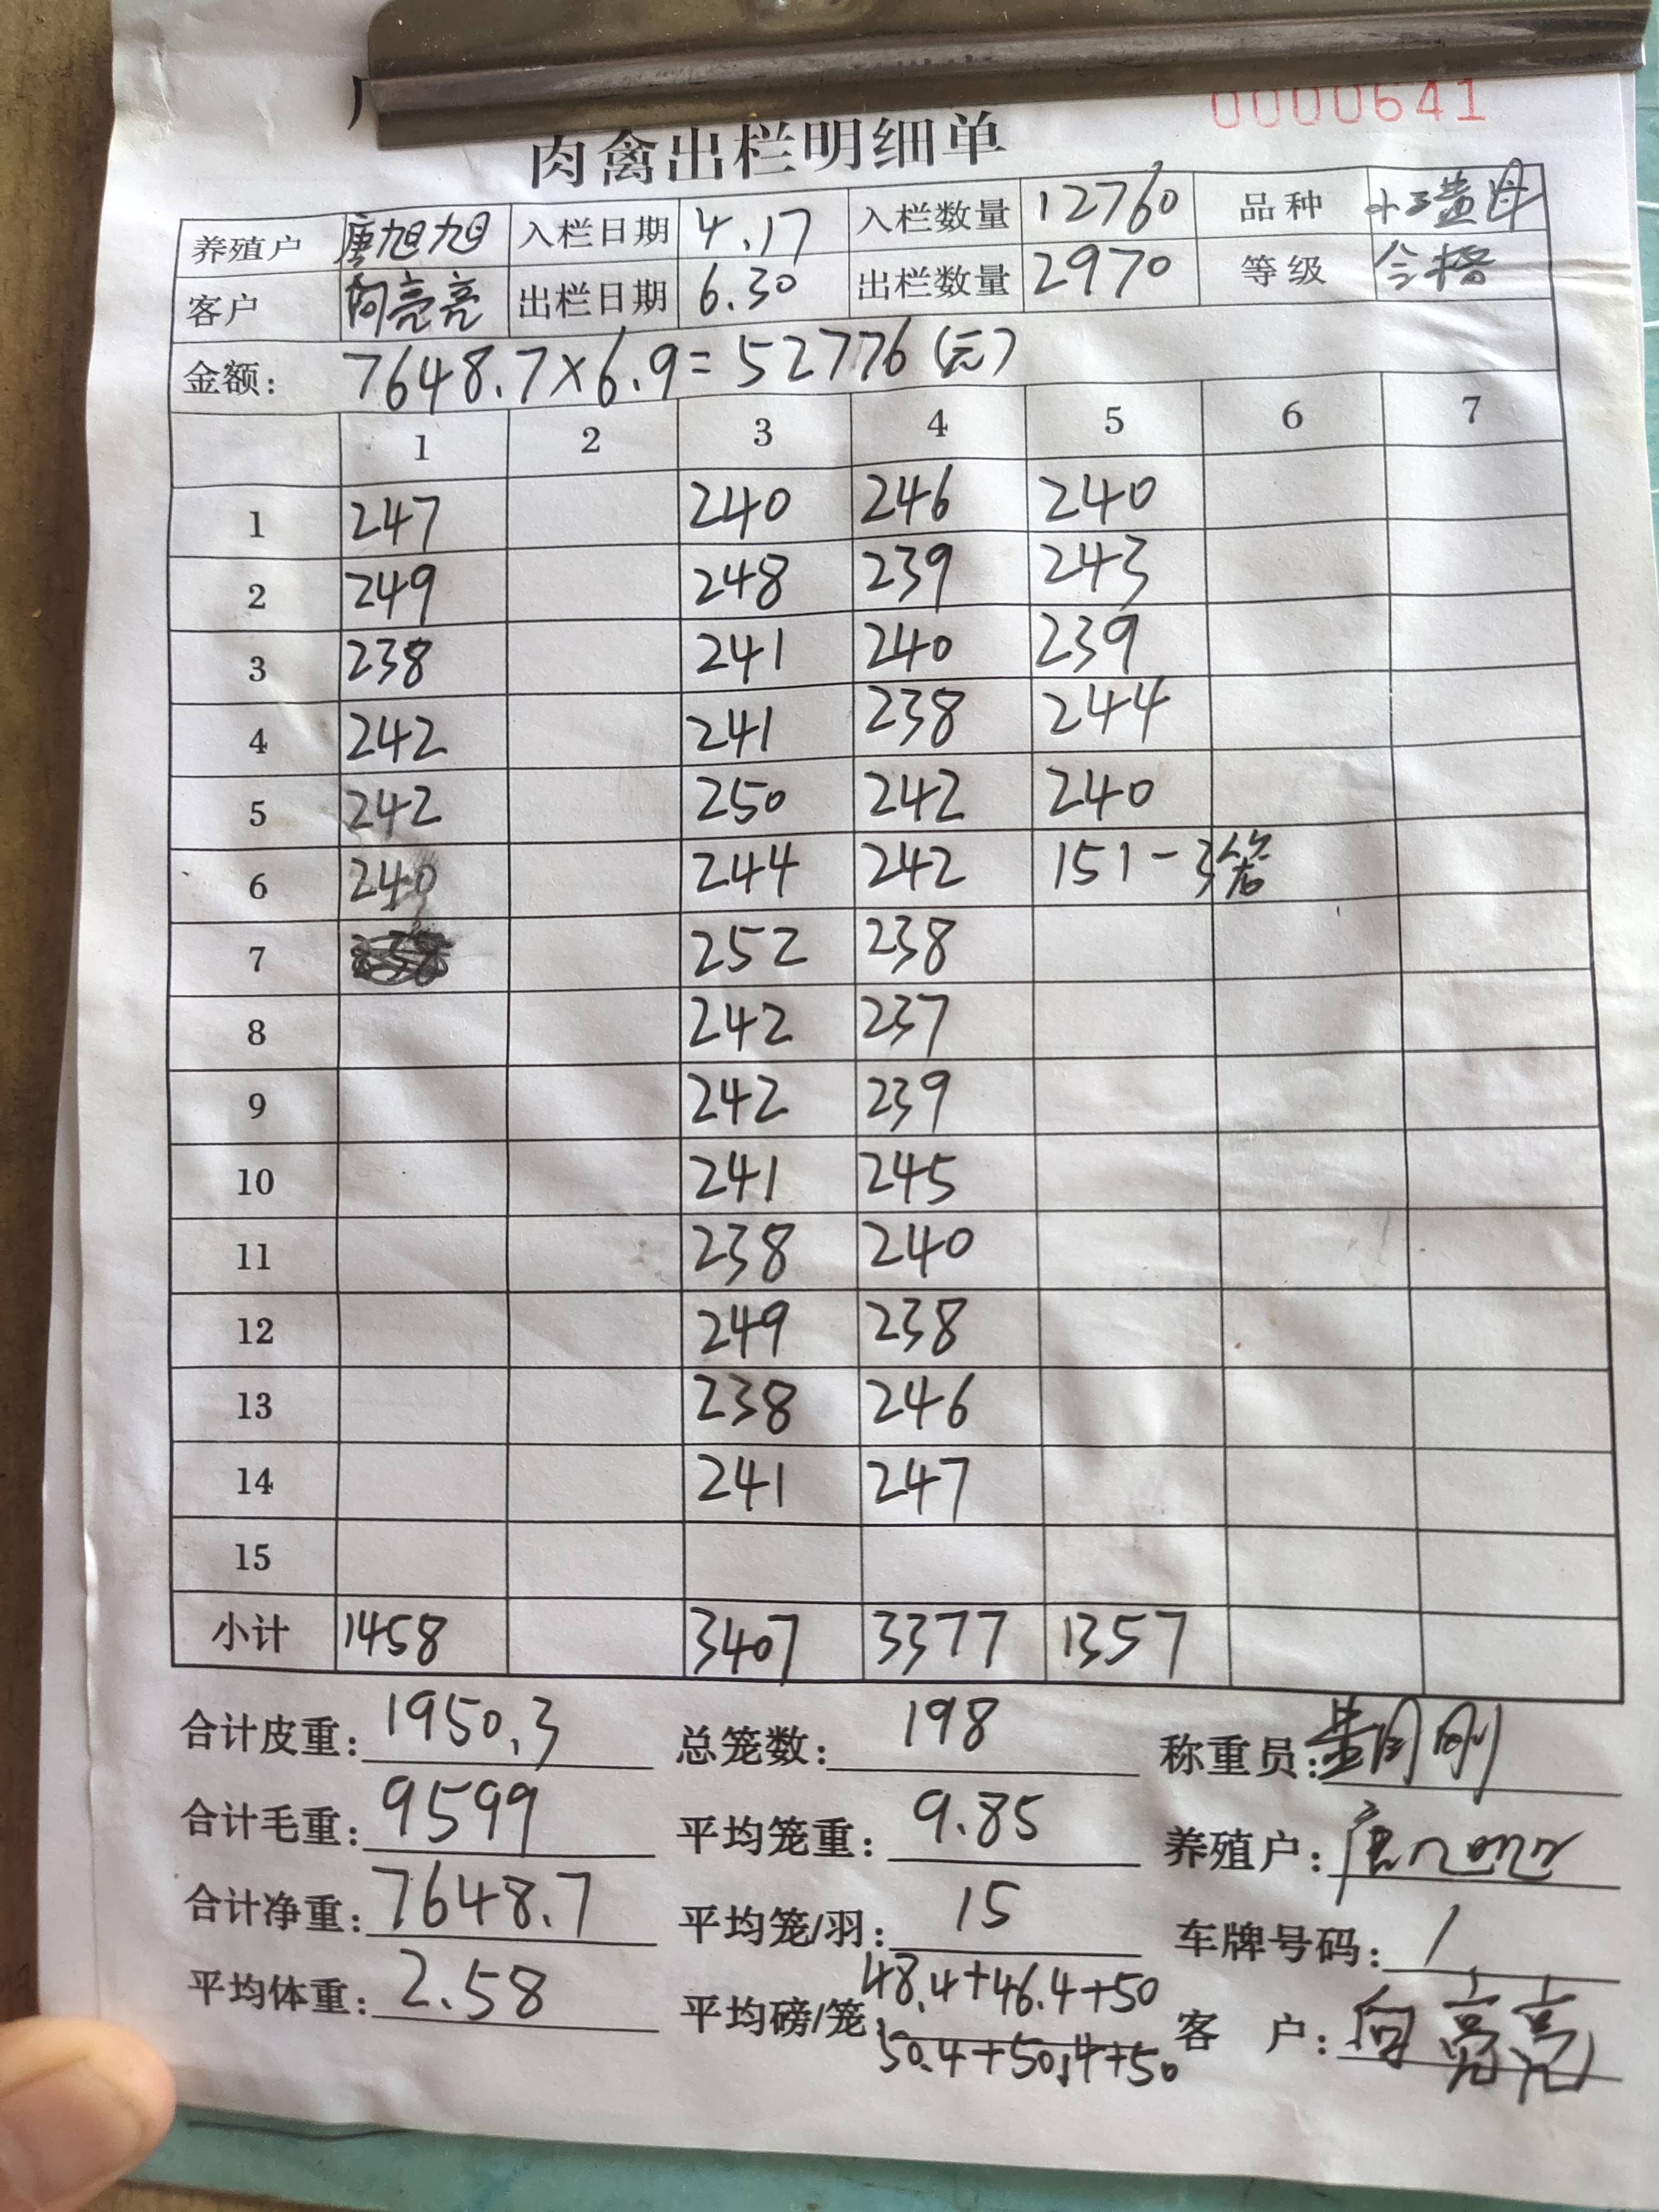 0000641
肉禽出栏明细单
养殖户 唐旭旭 入栏日期 4.17 入栏数量 12760 品种
客户 向亮亮 出栏日期 6.30 出栏数量 2970 等级 合格
金额: 7648.7×6.9=52776(元)
1 2 3 4 5 6 7
1 247 240 246 240
2 249 248 239 243
3 238 241 240 239
4 242 241 238 244
5 242 250 242 240
6 240 244 242 151-3笼
7 252 238
8 242 237
9 242 239
10 241 245
11 238 240
12 249 238
13 238 246
14 241 247
15
小计 1458 3407 3377 1357
合计皮重: 1950.3 总笼数: 198 称重员:
合计毛重: 9599 平均笼重: 9.85 养殖户:
合计净重: 7648.7 平均笼/羽: 15 车牌号码: 1
平均体重: 2.58 平均磅/笼: 48.4+46.4+50 客 户: 向亮亮
50.4+50.4+50